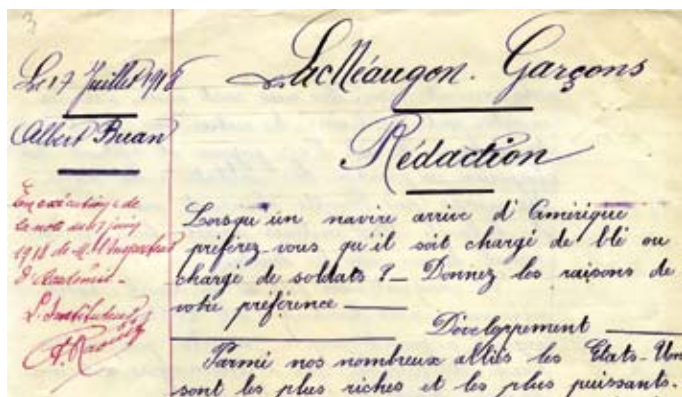 3
Le 17 Juillet 1918
La Méaugon. Garçons
Albert Buan
Rédaction
En exécution de
la note du 17 juin
1918 de M. l'Inspecteur
d'Académie.
L'Instituteur
Lorsqu'un navire arrive d'Amérique
préférez-vous qu'il soit chargé de blé ou
chargé de soldats ? — Donnez les raisons de
votre préférence —
Développement
Parmi nos nombreux alliés les Etats-Un
sont les plus riches et les plus puissants.